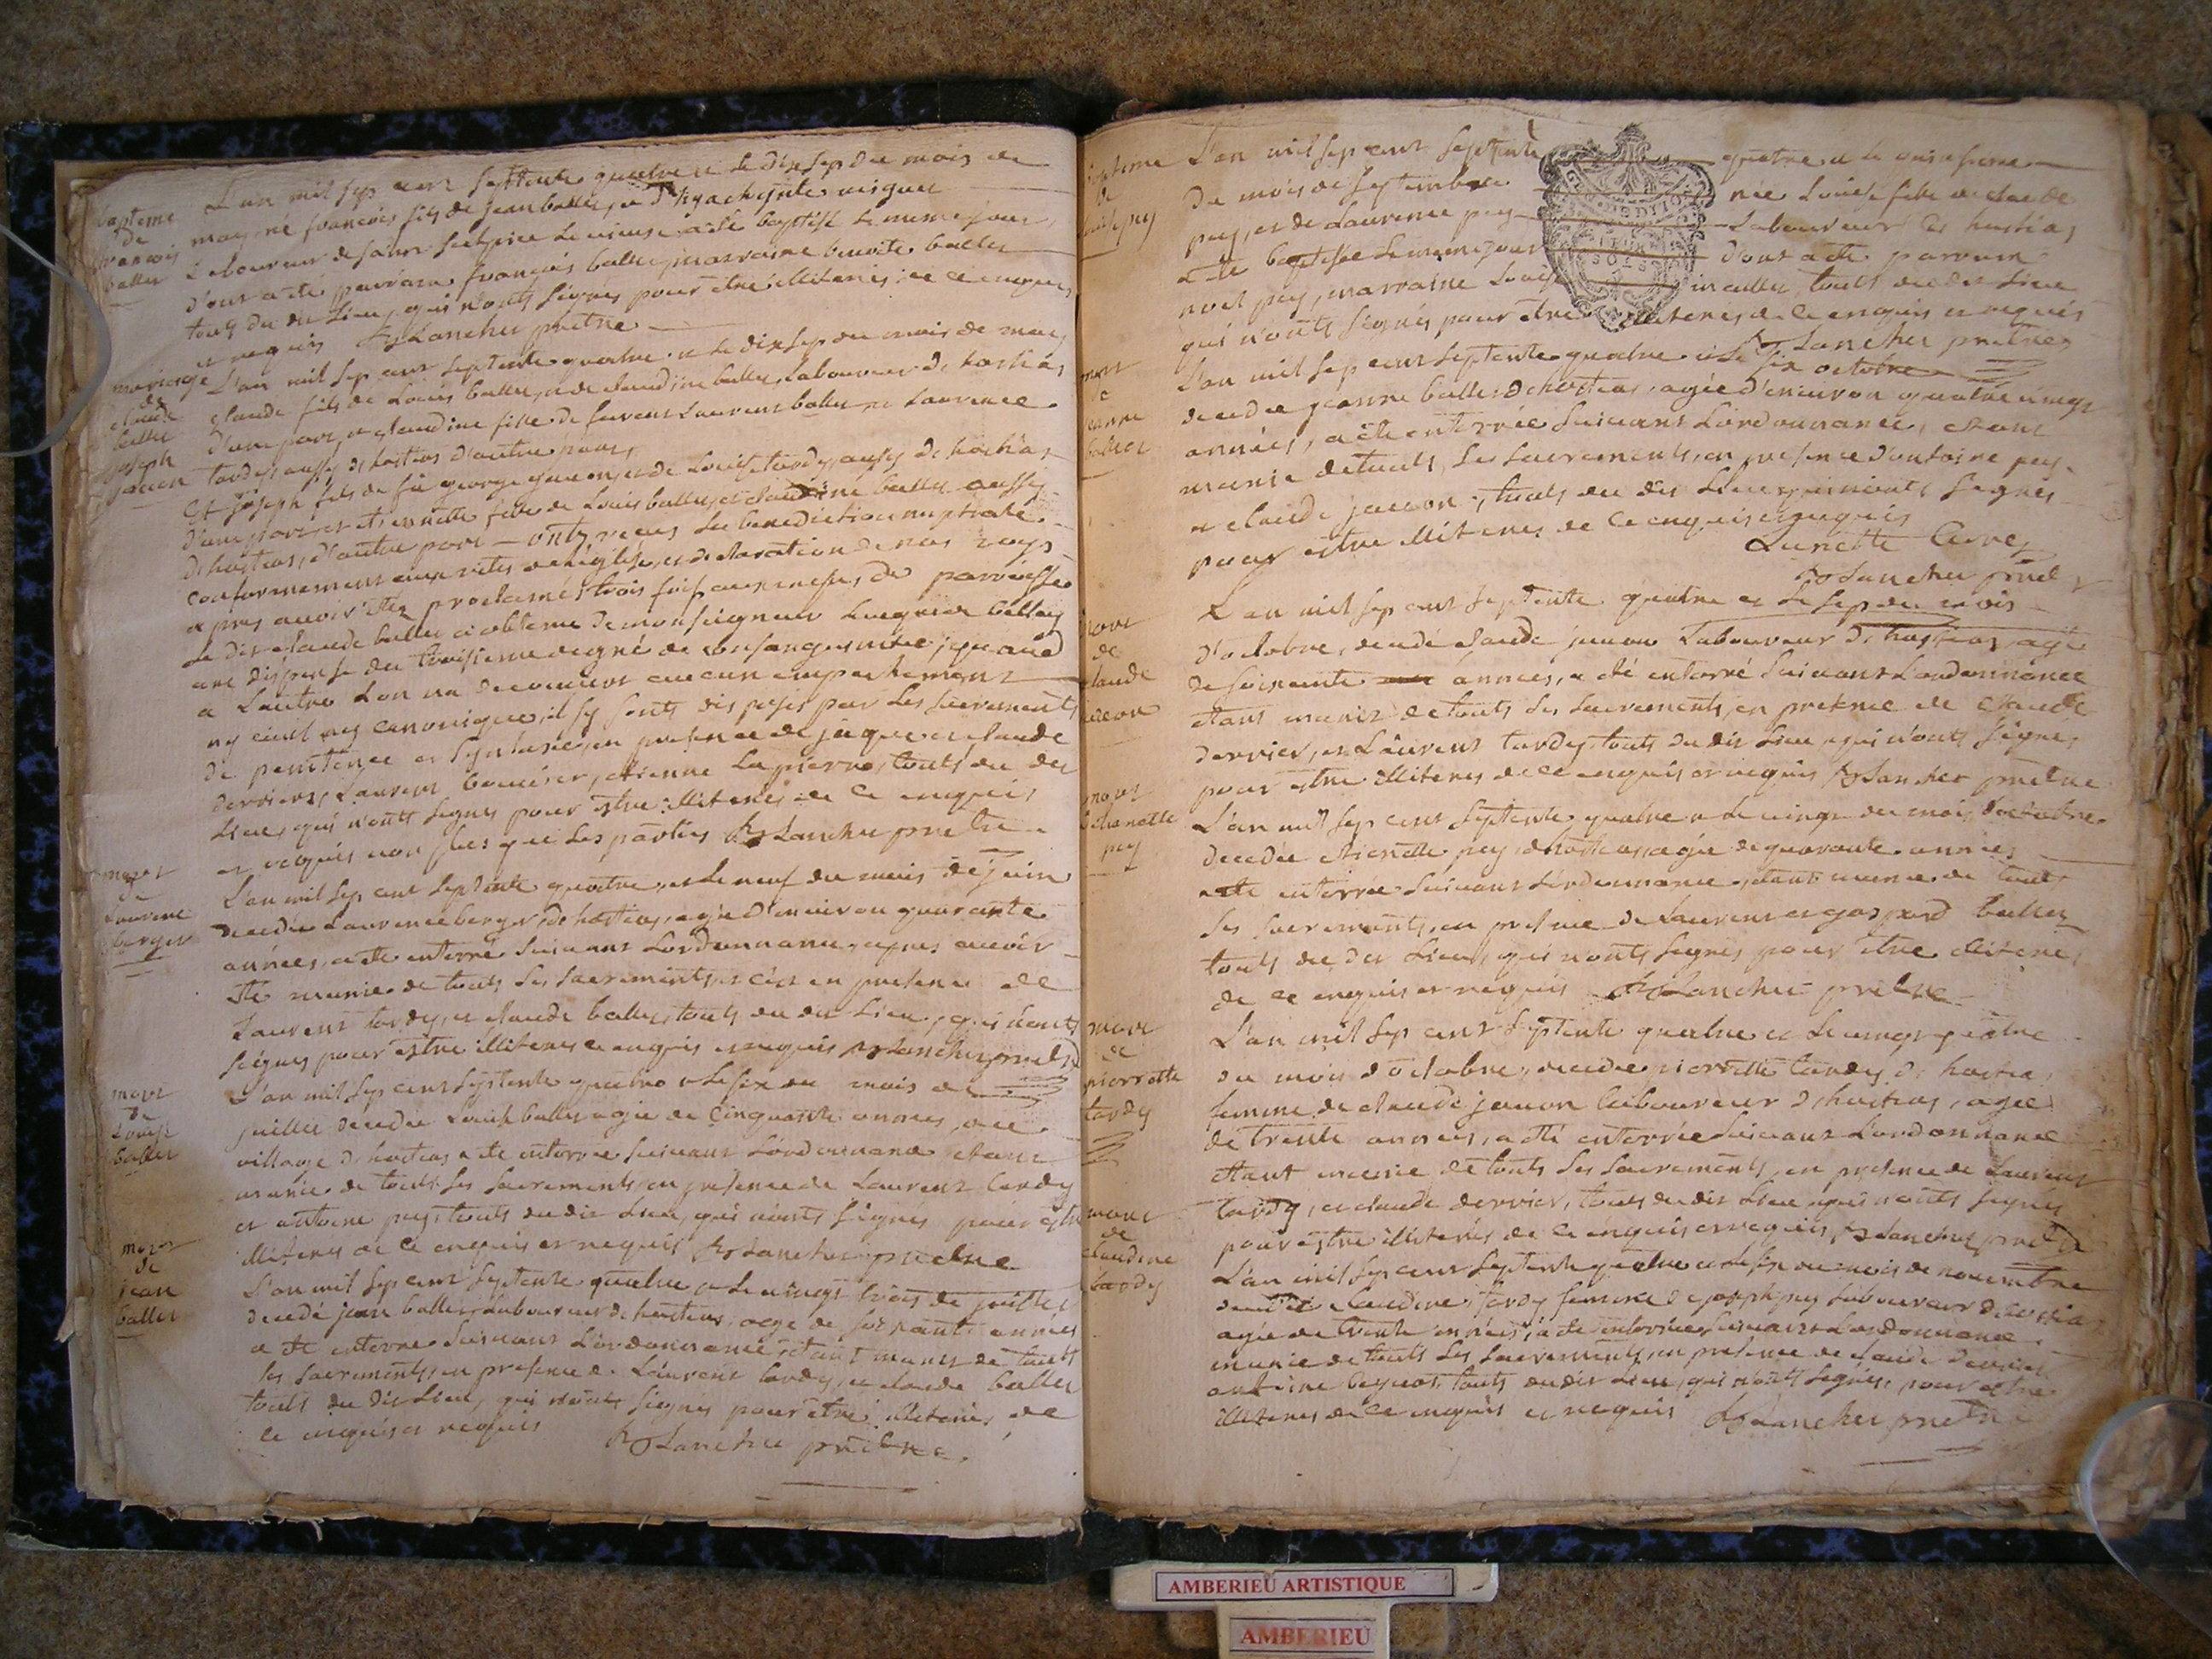 bapteme
de
francois
ballet
L'an mil sept cent septente quatre et le dix sep du mois de
may né francois fils de jean ballet, et d'hyachynte
Laboureur de saint sulpice le vieux a été baptisé le meme jour
dont a été parrain francois ballet, marraine benoite ballet
touts du dit Lieu, qui n'onts signés pour etre illiterés de ce enquis
et requis Lancher pretre
mariage
de
claude
ballet
joseph
juenon
L'an mil sep cent septente quatre et le dix sep du mois de may
claude fils de Louis ballet, et de claudine ballet Laboureur d'hostias
d'une part, et claudine fille de Laurent ballet et Laurence
tardy, aussy d'hostias d'autre part,
Et joseph fils de fû george et de Louise tardy, aussy d'hostias
d'une part, et etiennette fille de Louis ballet, et claudine ballet aussy
d'hostias, d'autre part — onts reçus la benediction nuptiale
conformement aux rites de l'église, et declaration de nos roys
apres avoir étés proclamés trois fois aux messes de parroisse
Le dit claude ballet a obtenu de monseigneur de bellay
une dispense du troisieme degré de consanguinité, quand
a L'autre L'on n'a decouvert aucun empechement
ny civil ny canonique, il sy sonts disposés par les sacrements
de penitence et en presence de jaque et claude
derriers, Laurent, etienne Lapierre, touts du dit
Lieu, qui n'onts signés pour estre illiterés de ce enquis
et requis non plus que les parties Lancher pretre
mort
de
Laurence
berger
L'an mil sep cent septente quatre, et le neuf du mois de juin
decedée Laurence berger d'hostias, agée d'environ quarante
années, a été enterré suivant L'ordonnance, apres avoir
été munie de touts les sacrements, et en presence de
Laurent tardy, et claude ballet, touts du dit Lieu, qui n'onts
signés pour estre illiterés de ce enquis et requis Lancher pretre
mort
de
Louise
ballet
L'an mil sep cent septente quatre et le six du mois de
juillet decedée Louise ballet agée de cinquante années, du
village d'hostias a été enterrée suivant L'ordonnance etant
munie de touts les sacrements en presence de Laurent tardy
et antoine pey, touts du dit Lieu, qui n'onts signés pour estre
illiterés de ce enquis et requis Lancher pretre
mort
de
jean
ballet
L'an mil sep cent septente quatre et le vingt trois de juillet
decedé jean ballet Laboureur d'hostias, agé de soixante années
a été enterré suivant L'ordonnance, etant munis de touts
les sacrements, en presence de Laurent tardy, et claude ballet
touts du dit Lieu, qui n'onts signés pour etre illiterés de
ce enquis et requis Lancher pretre
bapteme
de
Louise pey
L'an mil sep cent septente quatre et le onsieme
du mois de septembre née Louise fille de claude
pey, et de Laurence pey Laboureur d'hostias
a été baptisée le meme jour dont a été parrain
noel pey, marraine Louise touts du dit Lieu
qui n'onts signés pour etre illiterés de ce enquis et requis
Lancher pretre
mort
de
jeanne
ballet
L'an mil sep cent septente quatre et Le six octobre
decedée jeanne ballet d'hostias, agée d'environ quatre vingt
années, a été enterrée suivant L'ordonnance, etant
munie de touts les sacrements, en presence d'antoine pey
et claude juenon, touts du dit Lieu, qui n'onts signés
pour estre illiterés de ce enquis et requis
Lunette Curé
Lancher pretre
mort
de
claude
juenon
L'an mil sep cent septente quatre et le sep du mois
d'octobre, decedé claude juenon Laboureur d'hostias, agé
de soixante années, a été enterré suivant L'ordonnance
etant munis de touts les sacrements, en presence de claude
derrier, et Laurent tardy touts du dit Lieu, qui n'onts signés
pour estre illiterés de ce enquis et requis Lancher pretre
mort
d'etiennette
pey
L'an mil sep cent septente quatre et le vingt du mois d'octobre
decedée etiennette pey, d'hostias, agée de quarante années
a été enterrée suivant L'ordonnance, etant munie de touts
les sacrements, en presence de Laurent et gaspard ballet
touts du dit Lieu, qui n'onts signés pour etre illiterés
de ce enquis et requis Lancher pretre
mort
de
pierrette
tardy
L'an mil sep cent septente quatre et le vingt quatre
du mois d'octobre, decedée pierrette tardy d'hostias
femme de claude juenon Laboureur d'hostias, agée
de trente années, a été enterrée suivant L'ordonnance
etant munie de touts les sacrements, en presence de Laurent
tardy, et claude derrier, touts du dit Lieu qui n'onts signés
pour estre illiterés de ce enquis et requis, Lancher pretre
mort
de
claudine
tardy
L'an mil sep cent septente quatre et le six du mois de novembre
decedée claudine tardy femme de joseph pey Laboureur d'hostias
agée de trente années, a été enterrée suivant L'ordonnance
munie de touts les sacrements, en presence de claude derrier
antoine touts du dit Lieu, qui n'onts signés pour estre
illiterés de ce enquis et requis Lancher pretre
AMBERIEU ARTISTIQUE
AMBERIEU